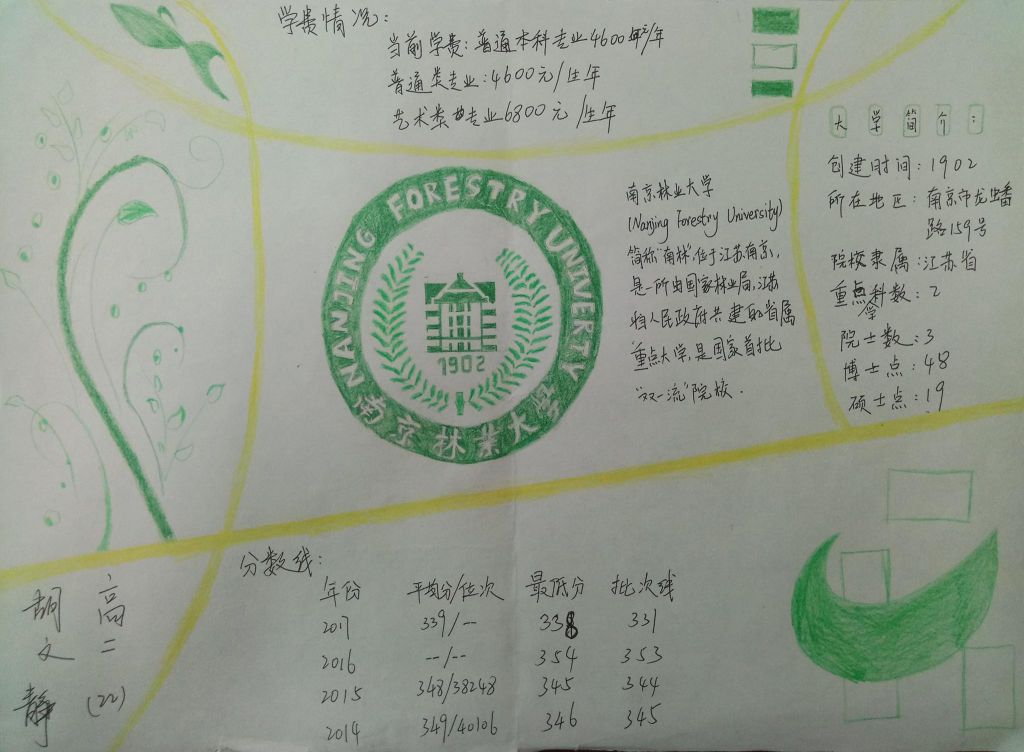 学费情况:
当前学费:普通本科专业4600/年
普通类专业:4600元/生年
艺术类专业6800元/生年
大学简介:
创建时间:1902
所在地区:南京市龙蟠
路159号
院校隶属:江苏省
重点学科数:2
院士数:3
博士点:48
硕士点:19
南京林业大学
(Nanjing Forestry University)
简称"南林",位于江苏南京,
是一所由国家林业局,江苏
省人民政府共建的省属
重点大学,是国家首批
"双一流"院校.
NANJING FORESTRY UNIVERTY
1902
南京林业大学
分数线:
年份 平均分/位次 最低分 批次线
2017 339/-- 338 331
2016 --/-- 354 353
2015 348/38248 345 344
2014 349/40106 346 345
胡文静
高二(22)